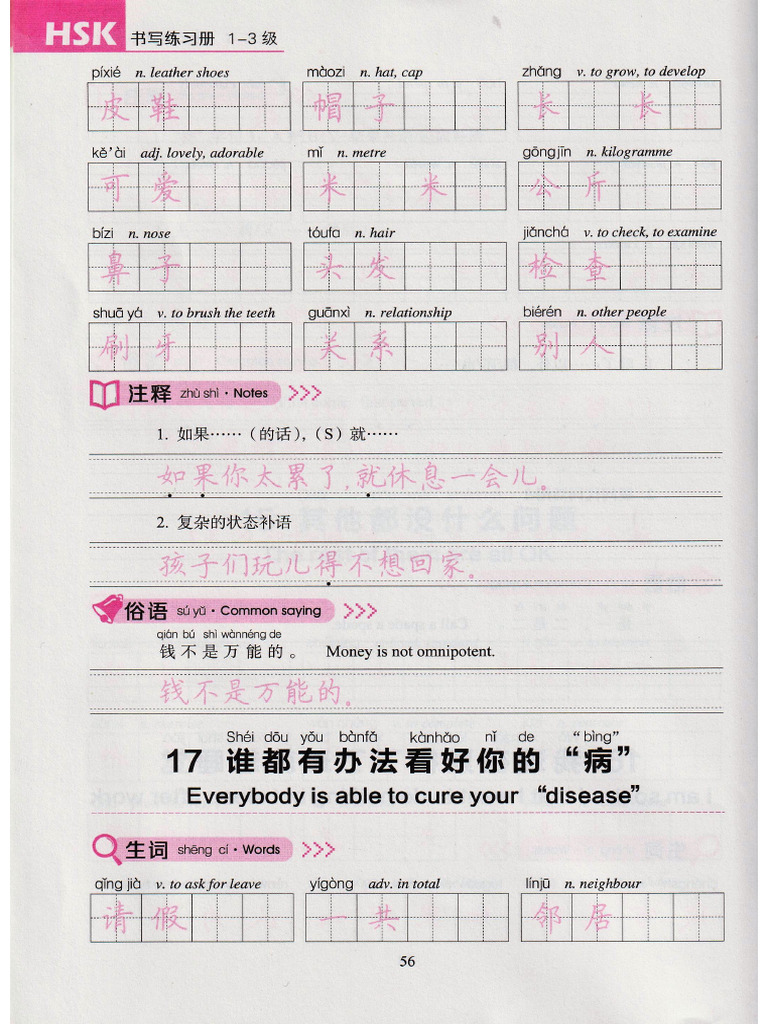 HSK 书写练习册 1-3级
píxié n. leather shoes màozi n. hat, cap zhǎng v. to grow, to develop
皮鞋 帽子 长 长
kě'ài adj. lovely, adorable mǐ n. metre gōngjīn n. kilogramme
可爱 米 米 公斤
bízi n. nose tóufa n. hair jiǎnchá v. to check, to examine
鼻子 头发 检查
shuā yá v. to brush the teeth guānxì n. relationship biérén n. other people
刷牙 关系 别人
注释 zhù shì · Notes >>>
1. 如果……（的话），（S）就……
如果你太累了,就休息一会儿。
2. 复杂的状态补语
孩子们玩儿得不想回家。
俗语 sú yǔ · Common saying >>>
qián bú shì wànnéng de
钱不是万能的。 Money is not omnipotent.
钱不是万能的。
Shéi dōu yǒu bànfǎ kànhǎo nǐ de “bìng”
17 谁都有办法看好你的“病”
Everybody is able to cure your “disease”
生词 shēng cí · Words >>>
qǐng jià v. to ask for leave yígòng adv. in total línjū n. neighbour
请假 一共 邻居
56